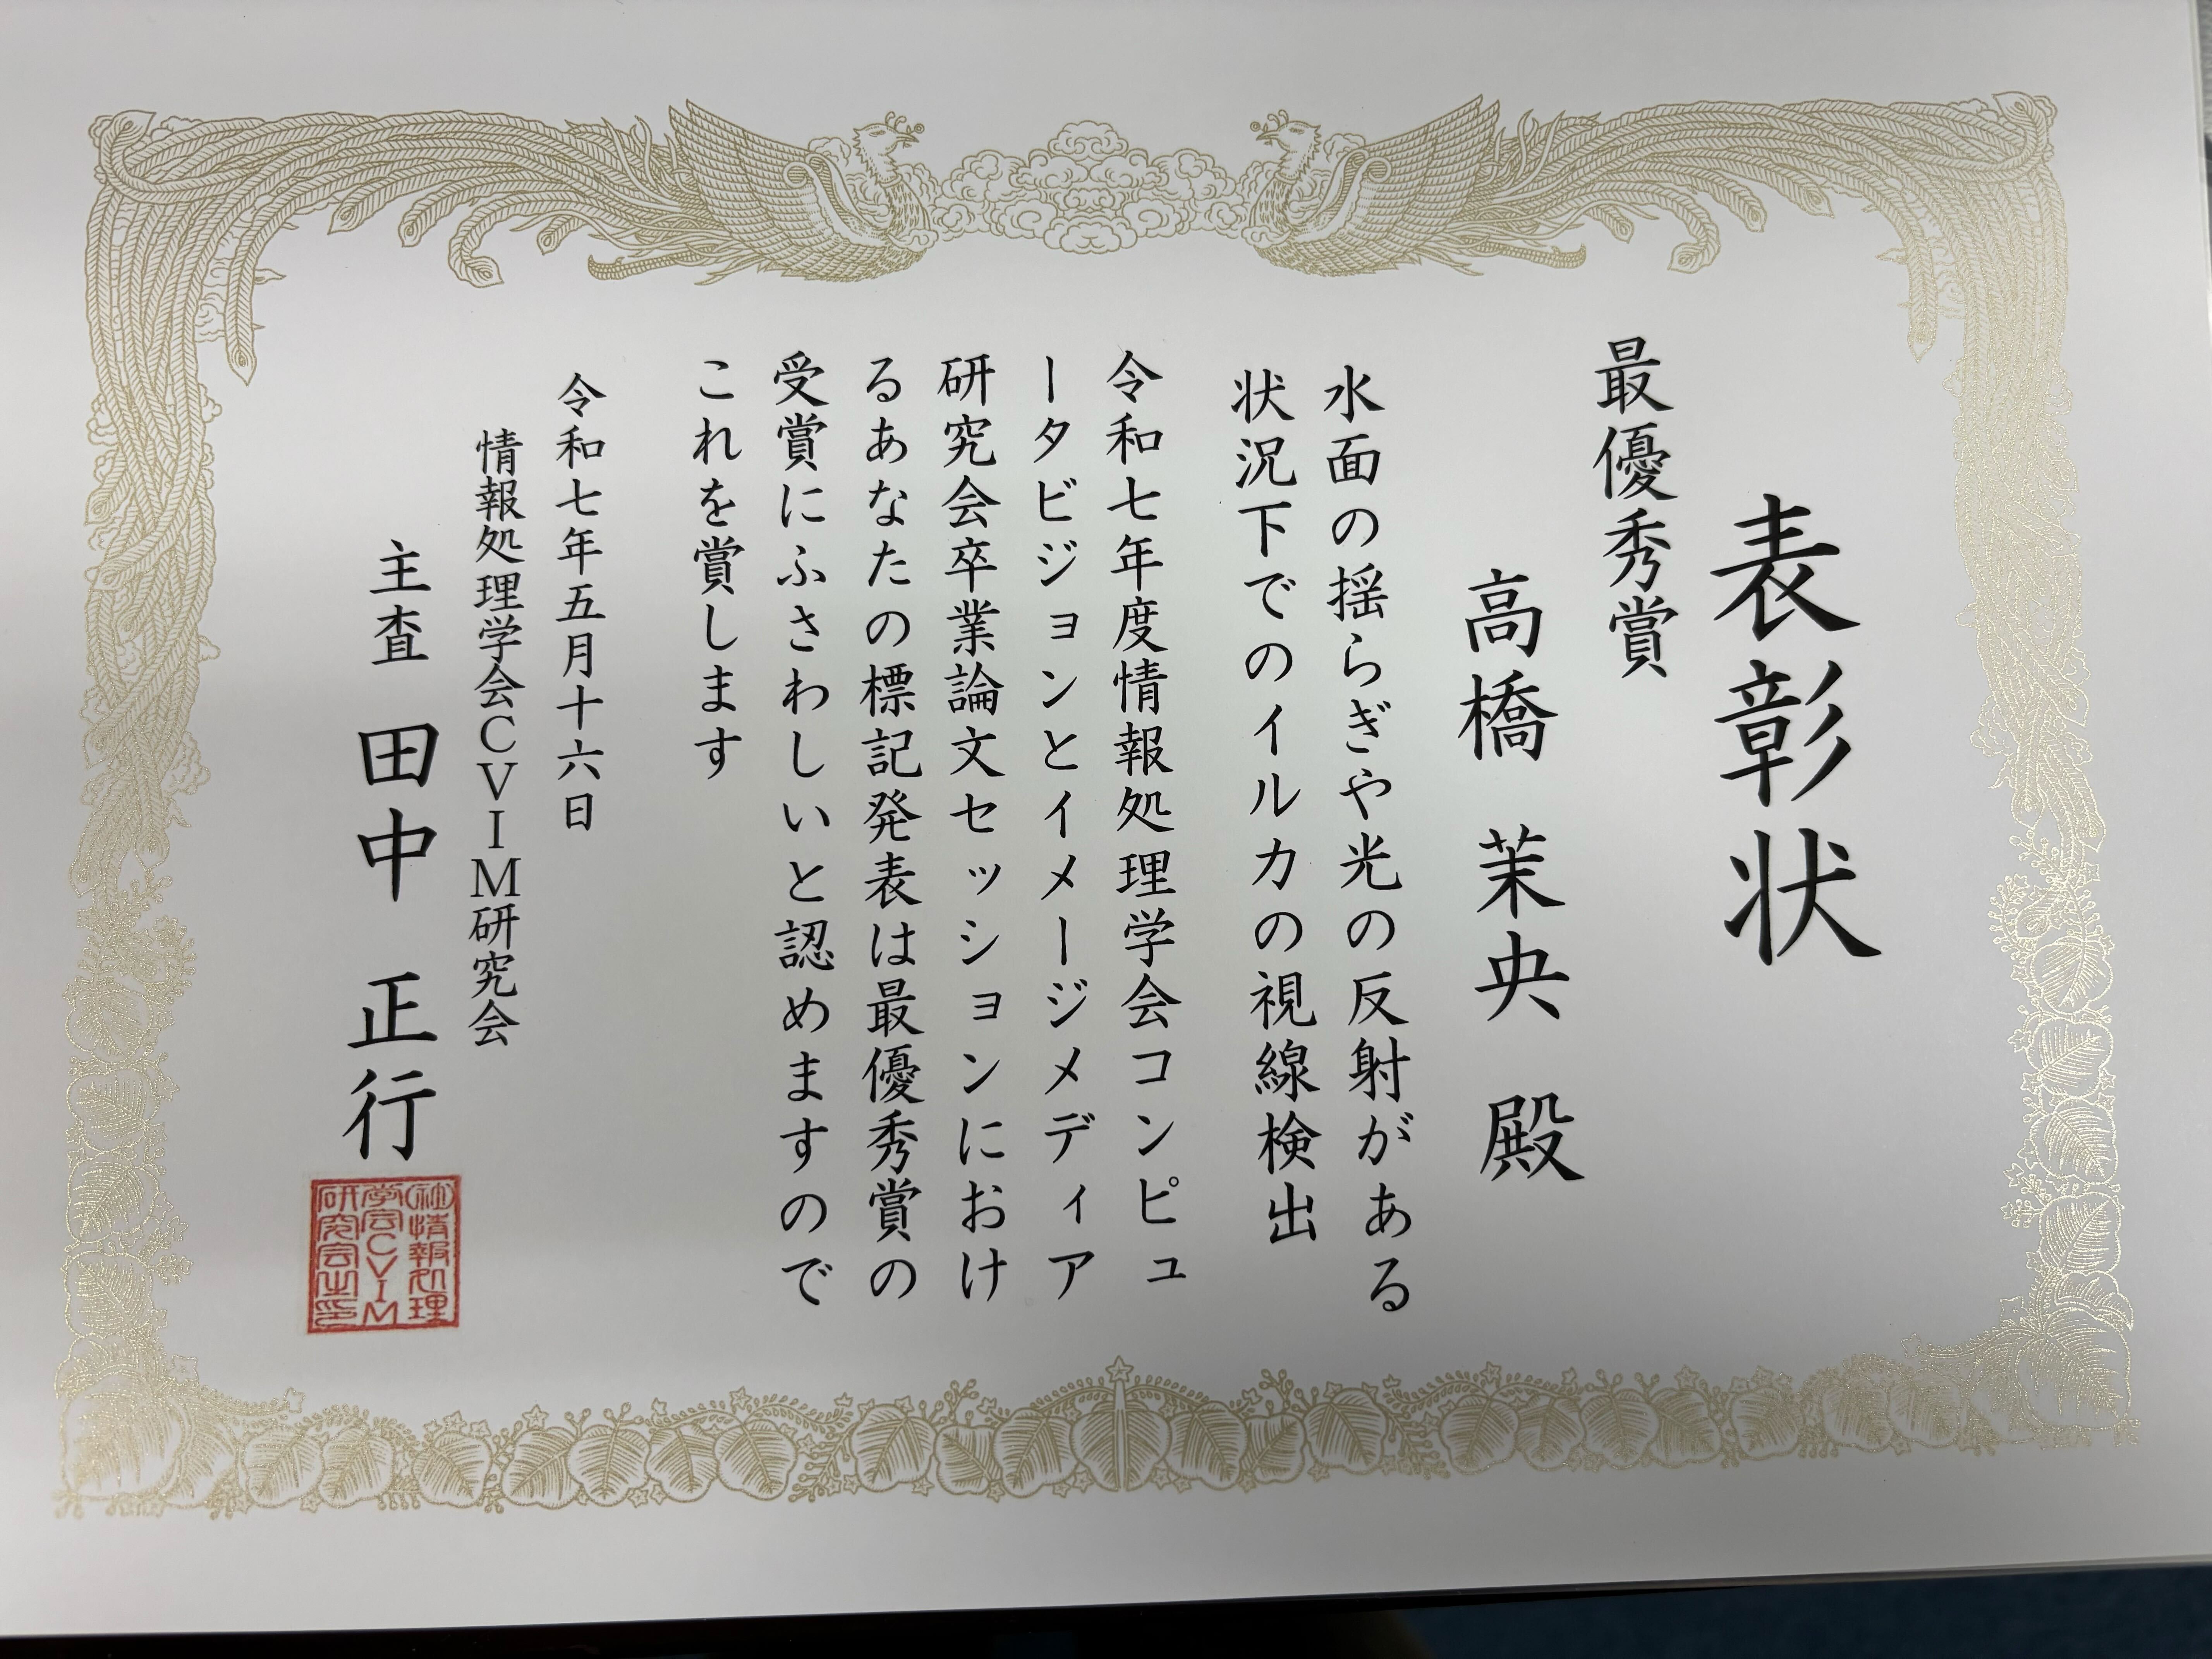 表彰状
最優秀賞
高橋 茉央 殿
水面の揺らぎや光の反射がある
状況下でのイルカの視線検出
令和七年度情報処理学会コンピュ
ータビジョンとイメージメディア
研究会卒業論文セッションにおけ
るあなたの標記発表は最優秀賞の
受賞にふさわしいと認めますので
これを賞します
令和七年五月十六日
情報処理学会CVIM研究会
主査 田中 正行
情報処理
学会CVIM
研究会之印